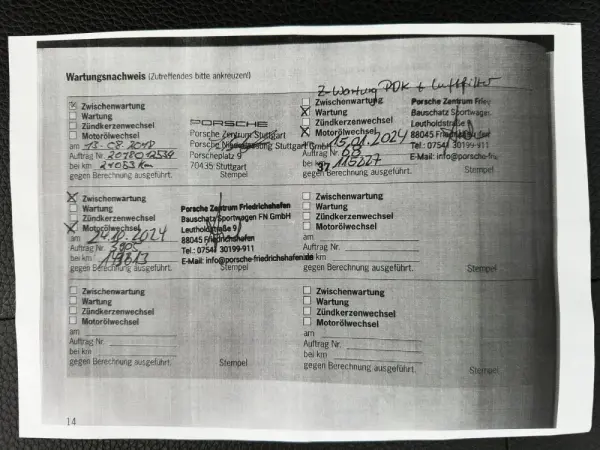 Wartungsnachweis (Zutreffendes bitte ankreuzen!)
Zwischenwartung
Wartung
Zündkerzenwechsel
Motorölwechsel
am 13.08.2018
Auftrag Nr.
bei km
gegen Berechnung ausgeführt.
PORSCHE
Porsche Zentrum Stuttgart
Porsche Niederlassung Stuttgart GmbH
Porscheplatz 9
70435 Stuttgart
Stempel
Z-Wartung PDK + Luftfilter
Zwischenwartung
Wartung
Zündkerzenwechsel
Motorölwechsel
am 15.01.2024
Auftrag Nr.
bei km 115227
gegen Berechnung ausgeführt.
Porsche Zentrum
Bauschatz Sportwagen
Leutholdstraße
88045
Tel.: 07541 30199-911
E-Mail: info@porsche-fri
Stempel
Zwischenwartung
Wartung
Zündkerzenwechsel
Motorölwechsel
am 24.10.2024
Auftrag Nr. 3905
bei km
gegen Berechnung ausgeführt.
Porsche Zentrum Friedrichshafen
Bauschatz Sportwagen FN GmbH
Leutholdstraße 9
88045 Friedrichshafen
Tel.: 07541 30199-911
E-Mail: info@porsche-friedrichshafen.de
Stempel
Zwischenwartung
Wartung
Zündkerzenwechsel
Motorölwechsel
am
Auftrag Nr.
bei km
gegen Berechnung ausgeführt.
Stempel
Zwischenwartung
Wartung
Zündkerzenwechsel
Motorölwechsel
am
Auftrag Nr.
bei km
gegen Berechnung ausgeführt.
Stempel
Zwischenwartung
Wartung
Zündkerzenwechsel
Motorölwechsel
am
Auftrag Nr.
bei km
gegen Berechnung ausgeführt.
Stempel
14